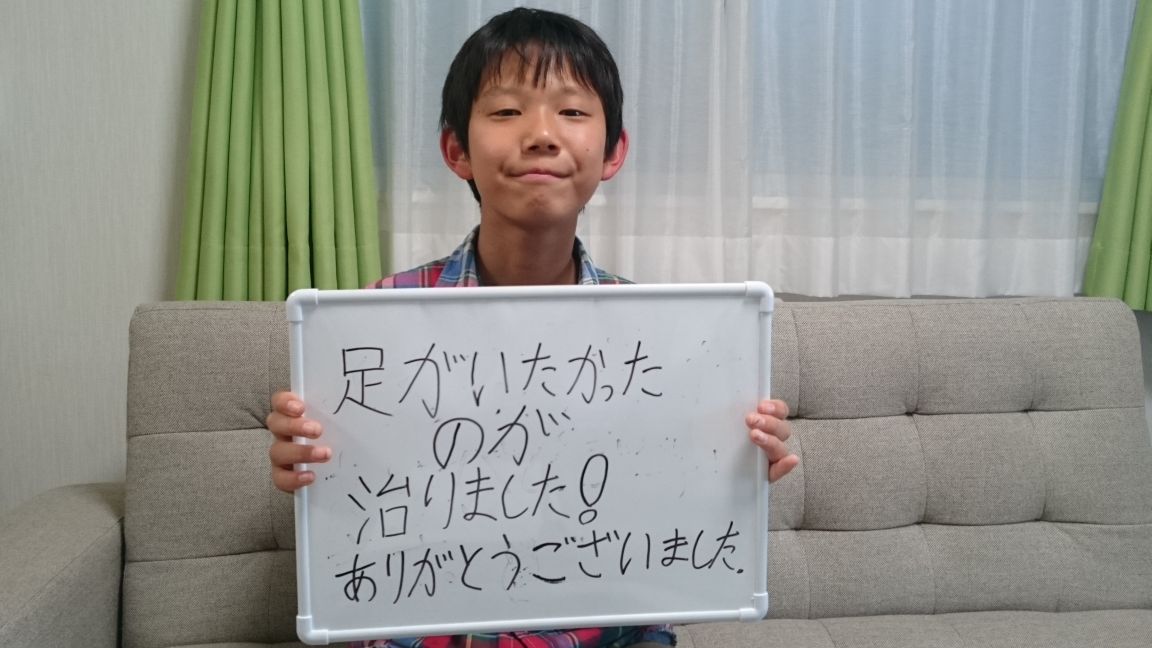 足がいたかった
のが
治りました!
ありがとうございました.